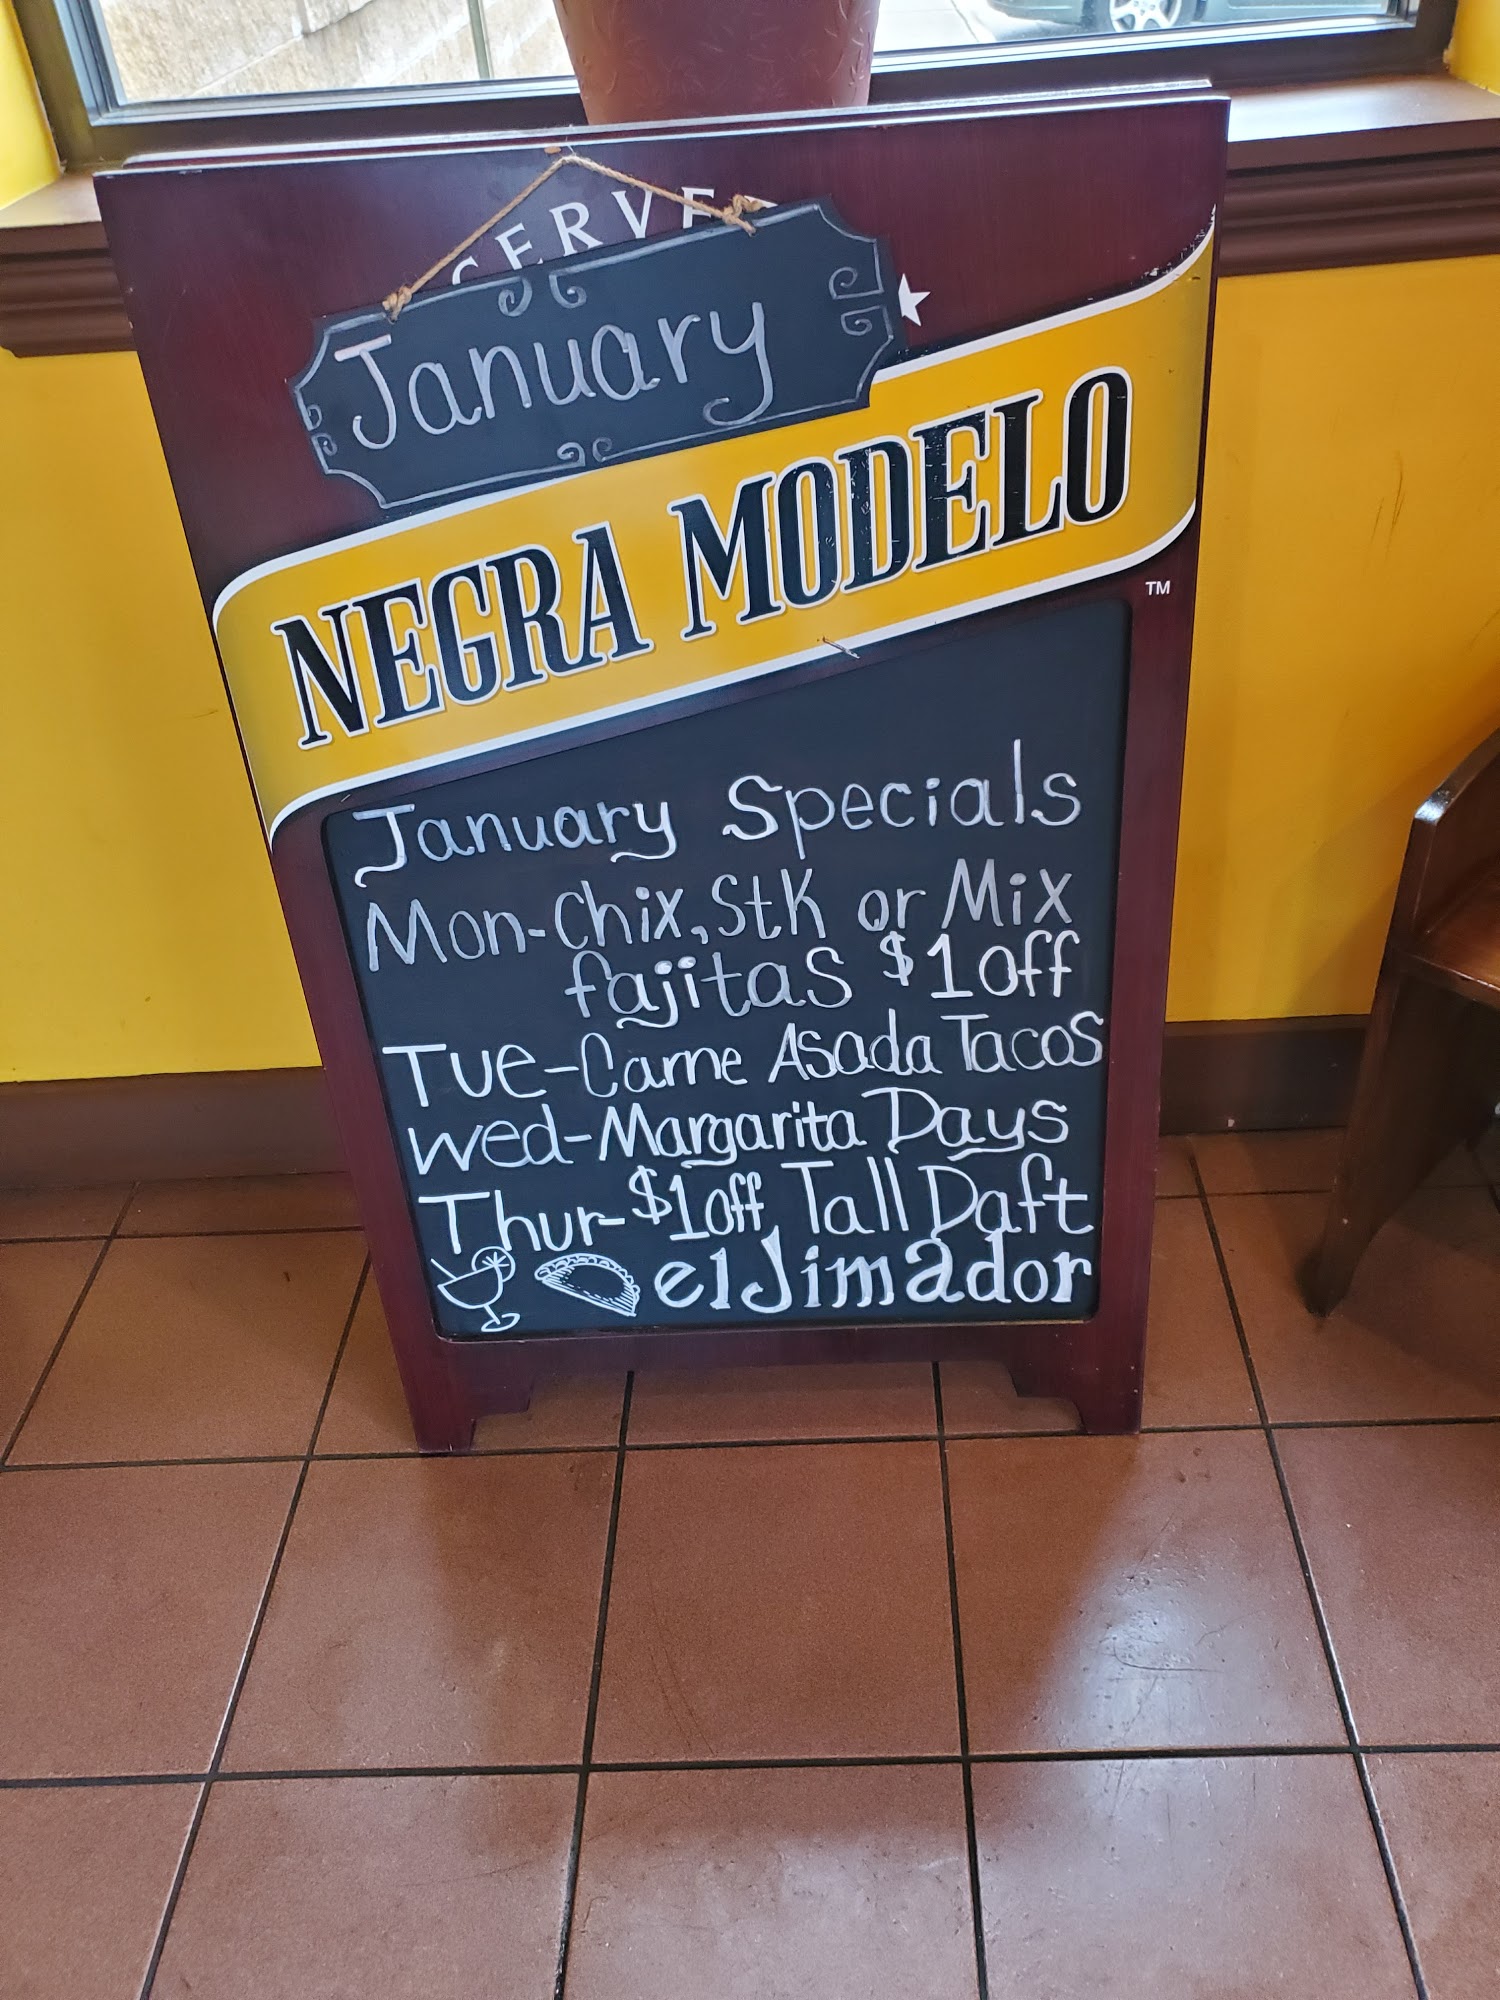 January
NEGRA MODELO
TM
January Specials
Mon-Chix, Stk or Mix
fajitas $1 off
Tue-Carne Asada Tacos
Wed-Margarita Days
Thur-$1off Tall Daft
el Jimador